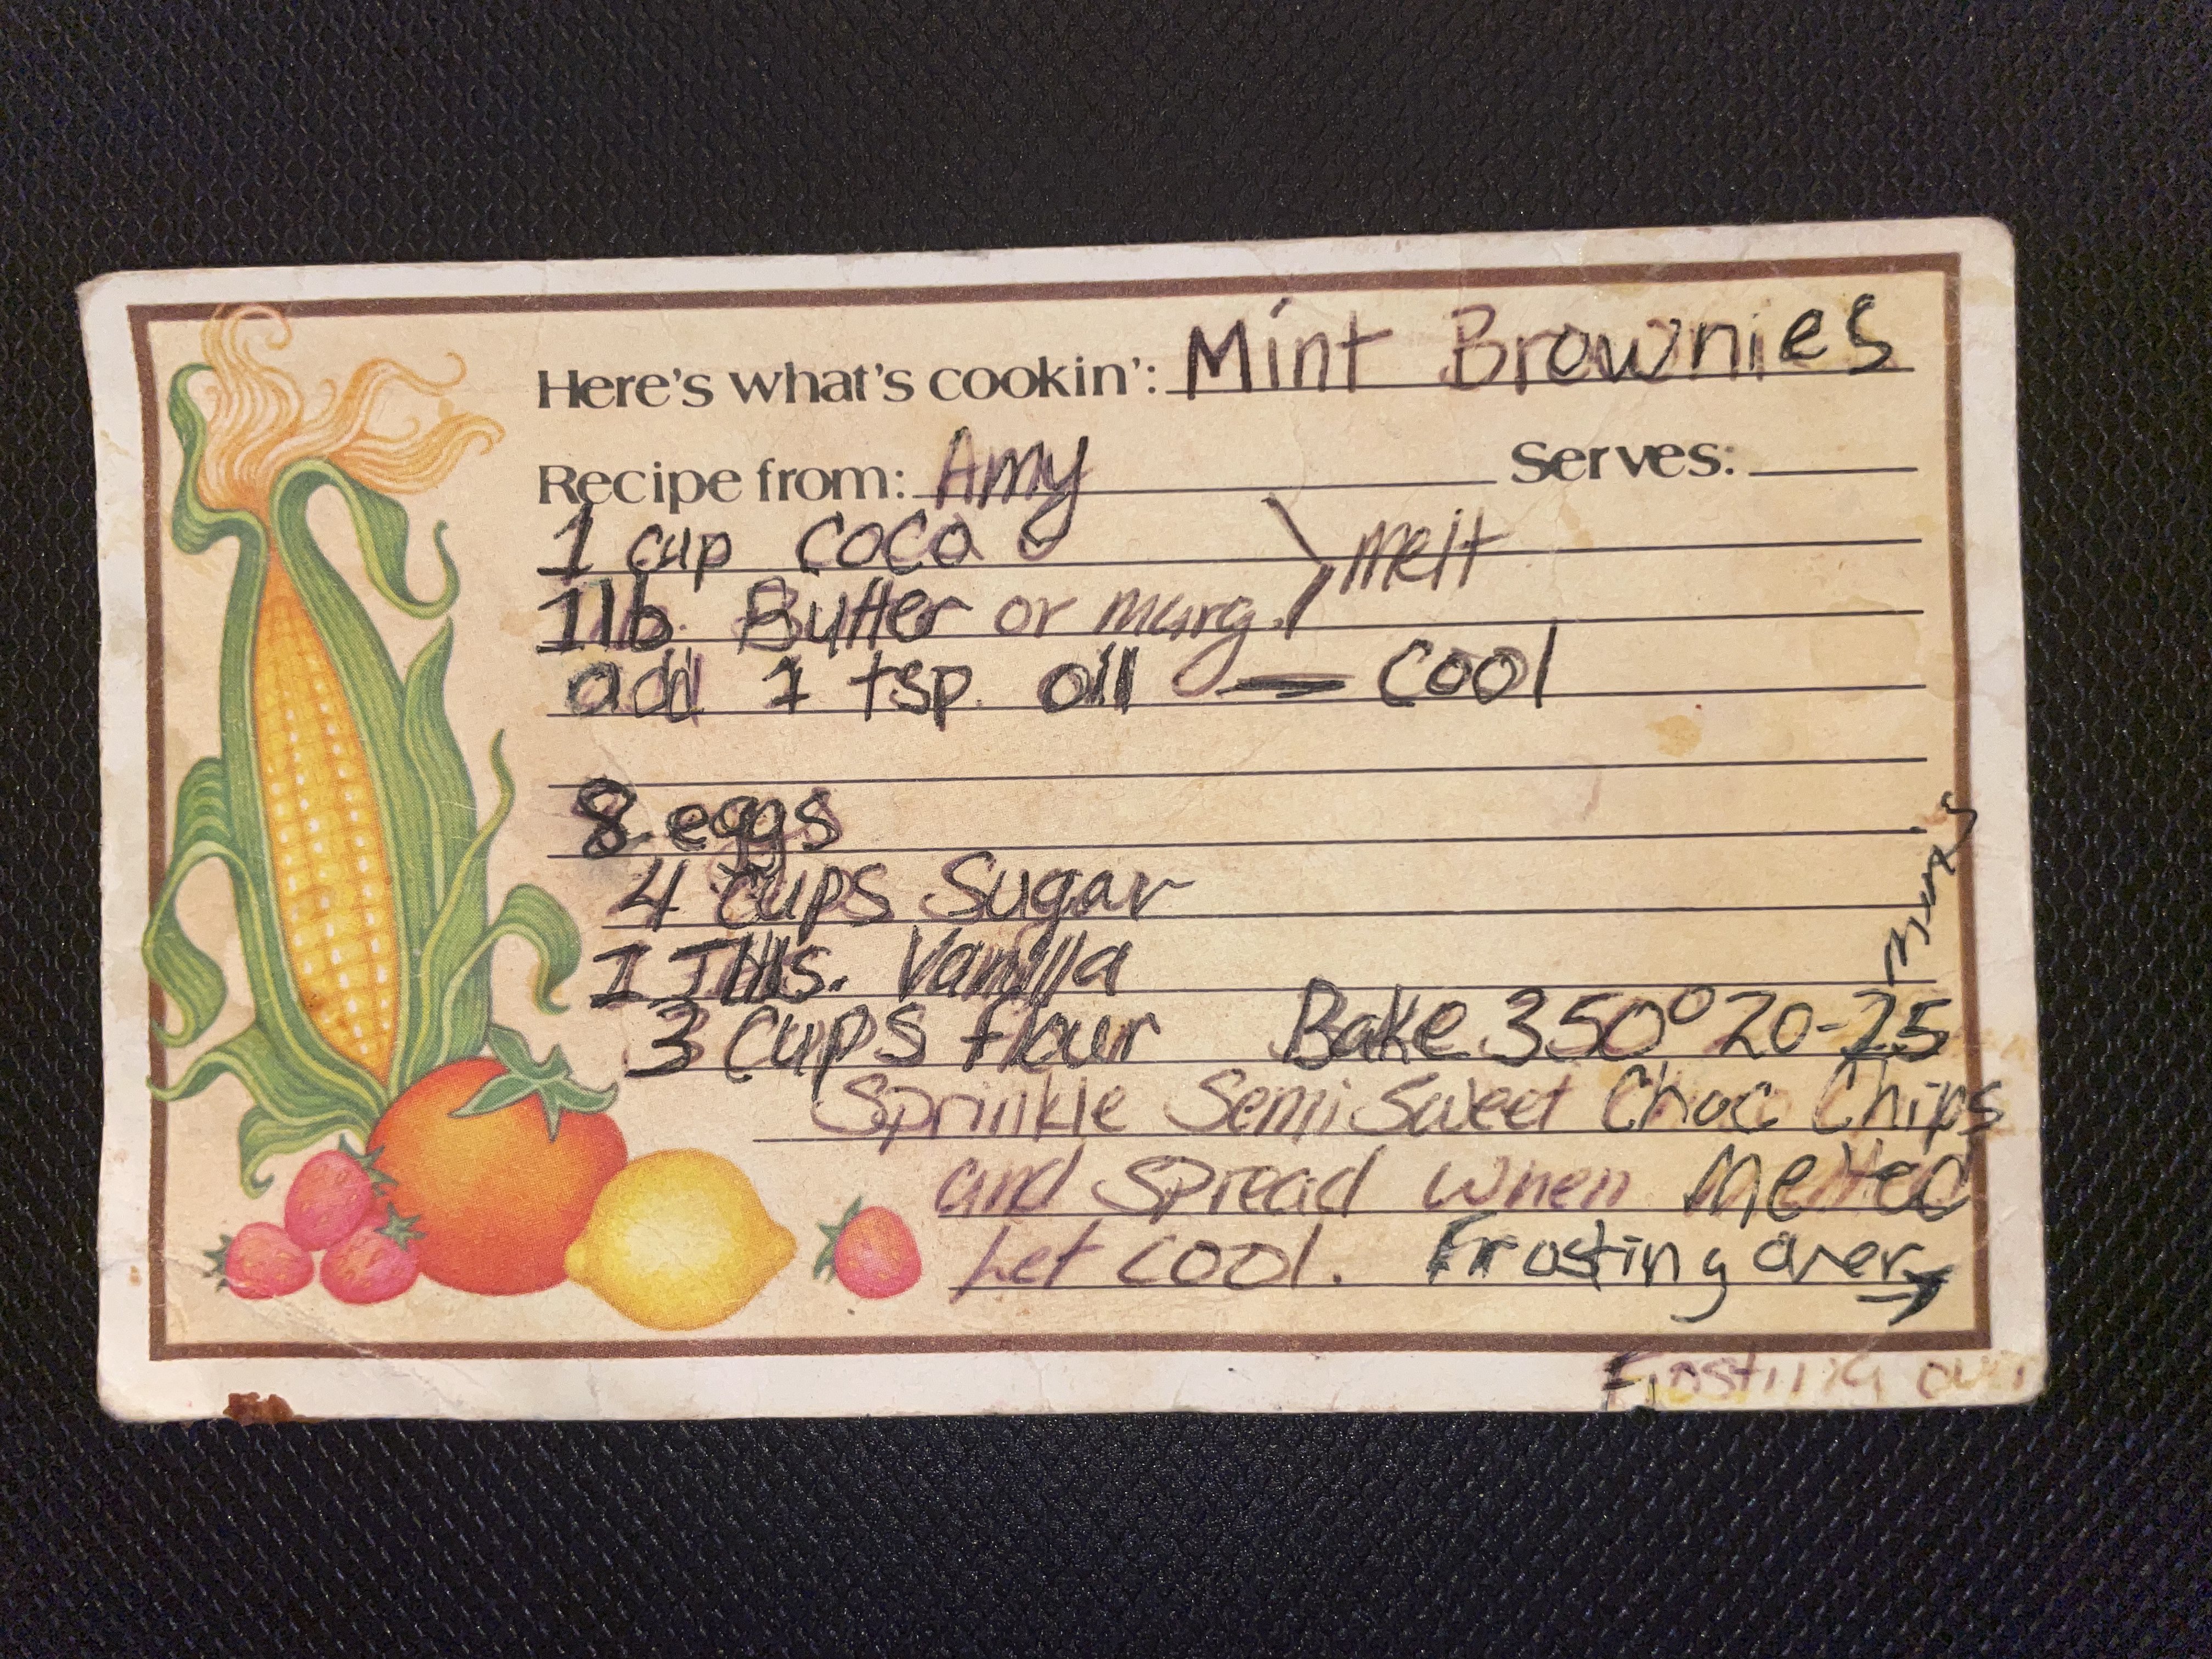 Here's what's cookin': Mint Brownies
Recipe from: Amy Serves:
1 cup coco
1 lb. Butter or marg. } Melt
add 1 tsp. oil — Cool
8 eggs
4 cups Sugar
1 Tbls. Vanilla
3 cups flour Bake 350° 20-25 mins
Sprinkle Semi Sweet Choc Chips
and spread when Melted
Let cool. Frosting over →
Frosting over